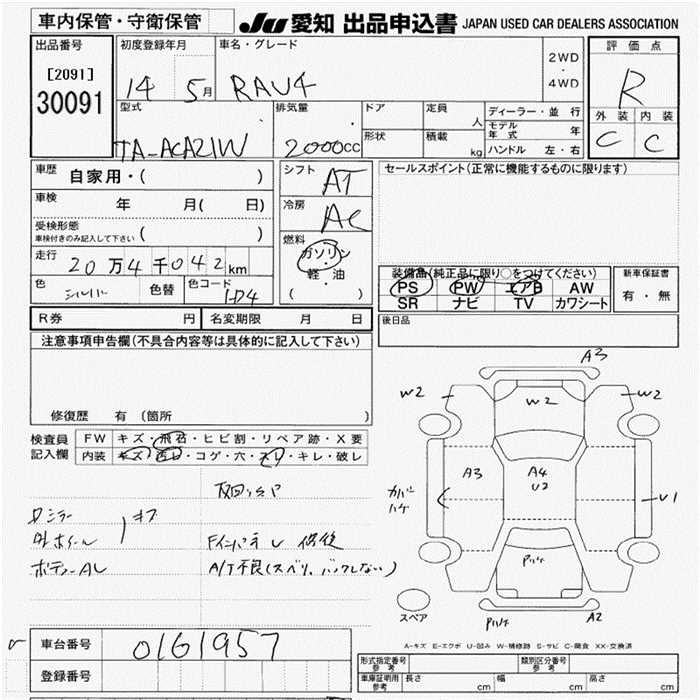 車内保管・守衛保管
JU 愛知 出品申込書 JAPAN USED CAR DEALERS ASSOCIATION
出品番号
[2091]
30091
初度登録年月
14 5月
車名・グレード
RAV4
2WD
・
4WD
評価点
R
外装 内装
C C
型式
TA-ACA21W
排気量
2000cc
ドア
形状
定員 人
積載 kg
ディーラー・並行
モデル年式 年
ハンドル 左・右
車歴 自家用・( )
車検 年 月( 日)
受検形態
車検付きのみ記入して下さい ( )
走行 20万4千042km
色 シルバー 色替 色コード 1D4
シフト AT
冷房 AC
燃料
ガソリン
・
軽・油
( )
セールスポイント(正常に機能するものに限ります)
装備品(純正品に限り○をつけてください)
PS PW エアB AW
SR ナビ TV カワシート
新車保証書
有・無
後日品
R券 円 名変期限 月 日
注意事項申告欄(不具合内容等は具体的に記入して下さい)
修復歴 有(箇所 )
検査員
記入欄
FW キズ・飛石・ヒビ割・リペア跡・X要
内装 キズ・汚レ・コゲ・穴・スレ・キレ・破レ
ボディーAL
A/T不良(スベリ、バックしない)
A3
W2
W2
W2
A3
A4
U2
カバー
ハゲ
U1
スペア
A2
A-キズ E-エクボ U-凹み W-補修跡 S-サビ C-腐食 XX-交換済
車台番号 0161957
登録番号
形式指定番号
参考
類別区分番号
参考
車庫証明用
参考
長さ cm 幅 cm 高さ cm